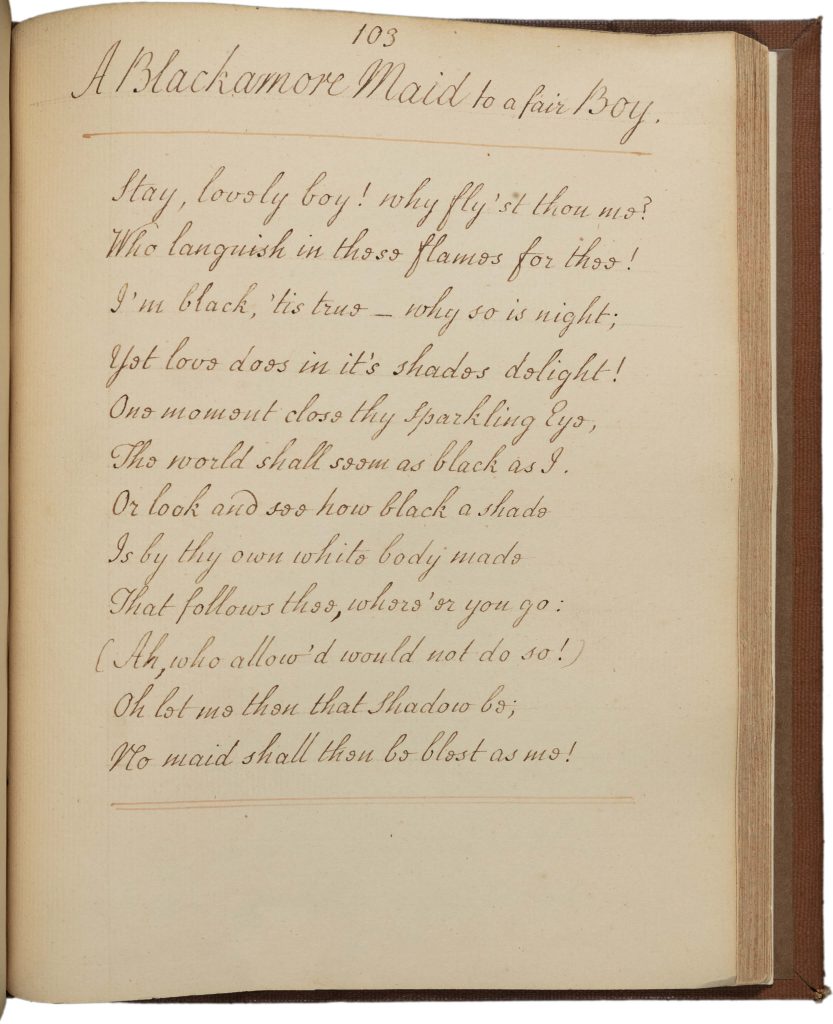 103
A Blackamore Maid to a fair Boy.
Stay, lovely boy! why fly'st thou me?
Who languish in these flames for thee!
I'm black, 'tis true — why so is night;
Yet love does in it's shades delight!
One moment close thy sparkling Eye,
The world shall seem as black as I.
Or look and see how black a shade
Is by thy own white body made
That follows thee, where'er you go:
(Ah, who allow'd would not do so!)
Oh let me then that shadow be;
No maid shall then be blest as me!